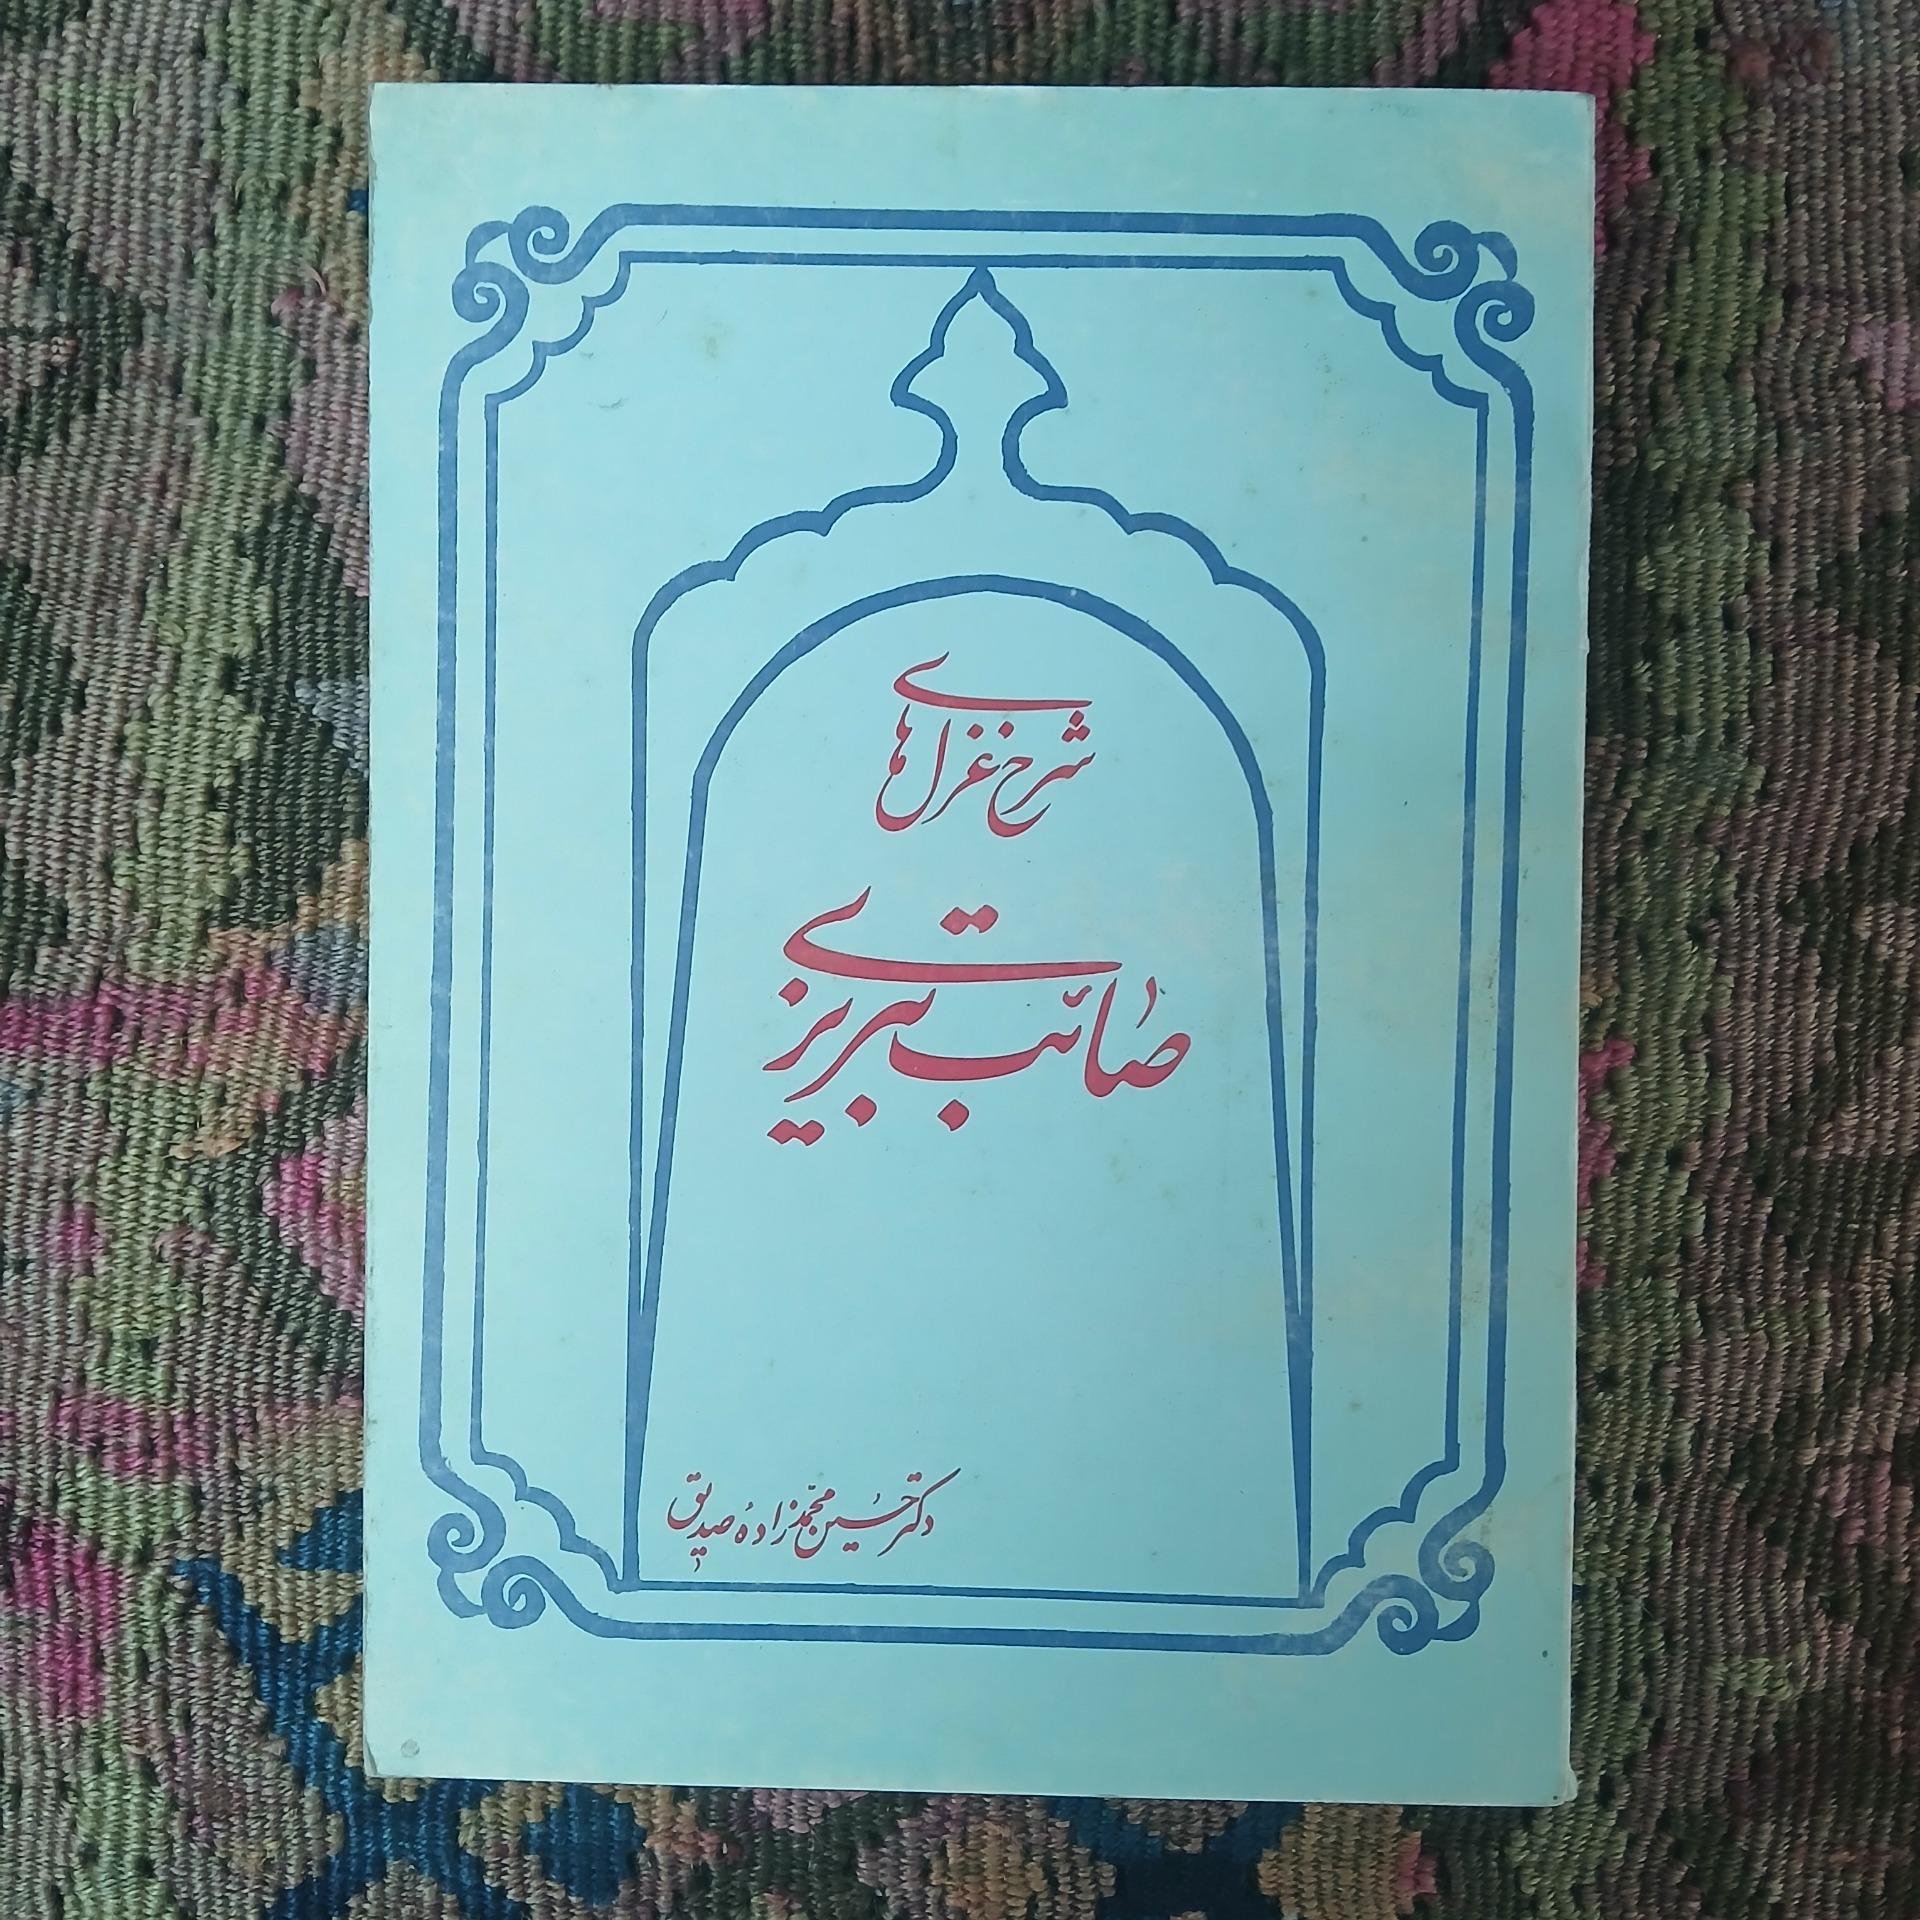 شرح غزل های
صائب تبریزی
دکتر حسین محمدزاده صدیق